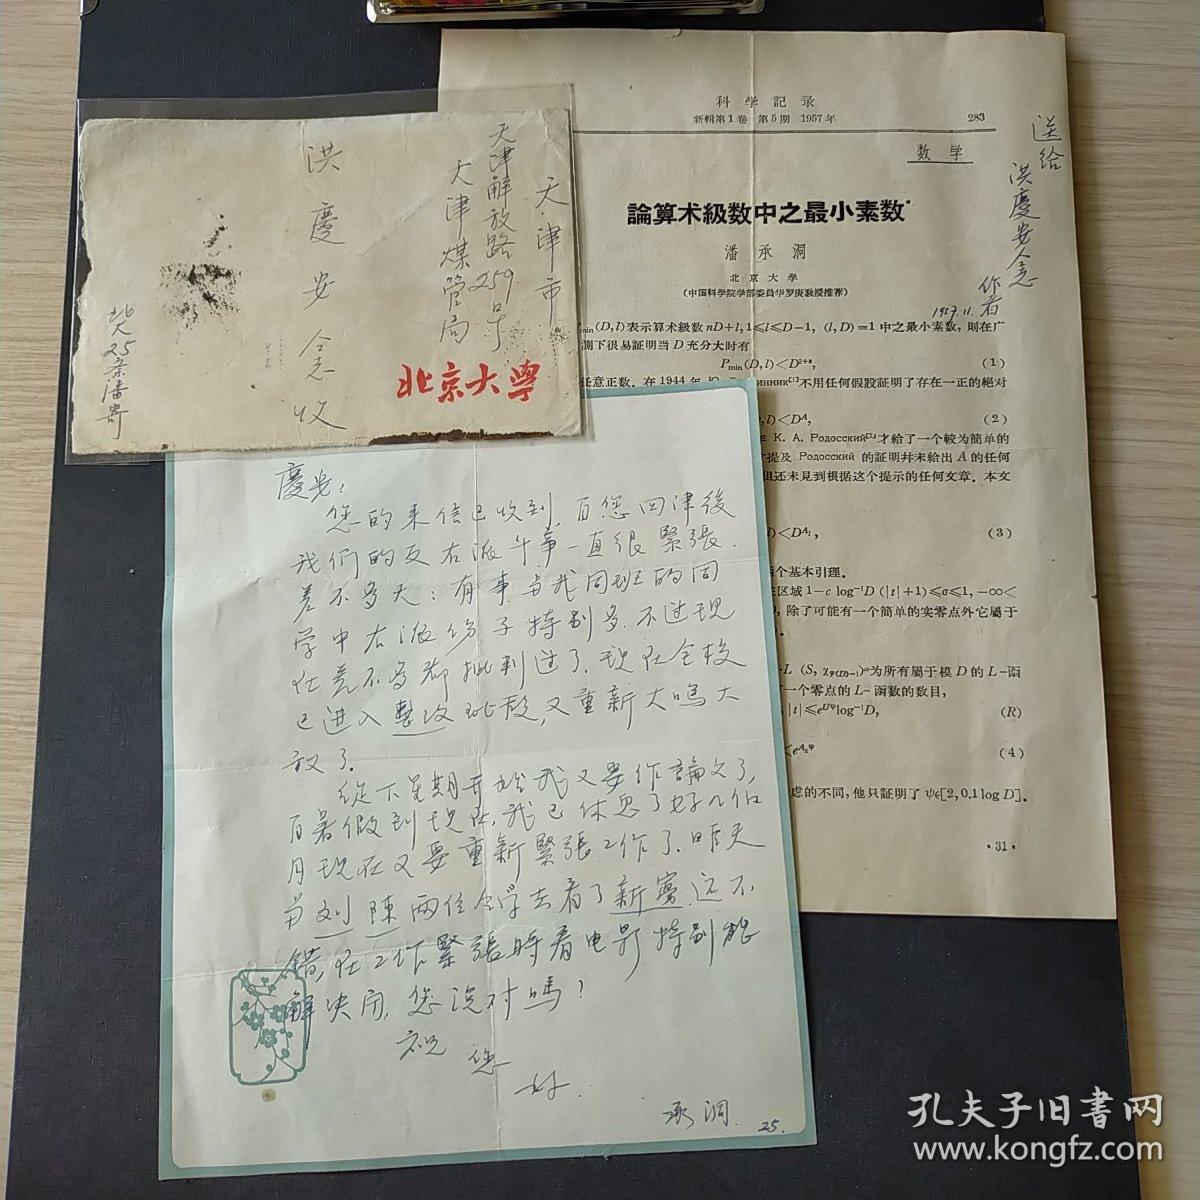 天津市
天津解放路259号
天津煤管局
洪慶安同志收
北京大學
北大25斋潘寄
科学記录
新輯第1卷 第5期 1957年
283
数学
論算术級数中之最小素数*
潘承洞
北京大学
(中国科学院学部委員华罗庚教授推荐)
送给
洪慶安同志
作者
1957.11.
min(D, l)表示算术級数 nD+l, 1≤l≤D−1, (l, D)=1 中之最小素数，則在广
測下很易証明当 D 充分大时有
(1)
任意正数．在 1944 年
инник[1]不用任何假設証明了存在一正的絶对
l)<D^A, (2)
К. А. Родосский[2]才給了一个較为簡单的
提及 Родосский 的証明幷未給出 A 的任何
但还未見到根据这个提示的任何文章．本文
)<D^A₁, (3)
个基本引理．
区域 1−c log⁻¹D (|t|+1)≤σ≤1, −∞<
，除了可能有一个簡单的实零点外它屬于
为所有屬于模 D 的 L-函
一个零点的 L- 函数的数目，
(R)
(4)
虑的不同，他只証明了 ψε[2, 0.1 log D].
·31·
慶安：
您的来信已收到，自您回津後
我们的反右派斗争一直很緊張．
差不多天天有事，与我同班的同
学中右派份子特别多，不过现
在差不多都批判过了，现在全校
已进入整改阶段，又重新大鳴大
放了．
從下星期开始我又要作論文了，
自暑假到现在，我已休息了好几个
月现在又要重新緊張工作了．昨天
与刘陳两位同学去看了新寡，还不
錯，在工作緊張時看电影特别能
解决问，您说对嗎？
祝
您
好．
承洞．25．
孔夫子旧書网
www.kongfz.com